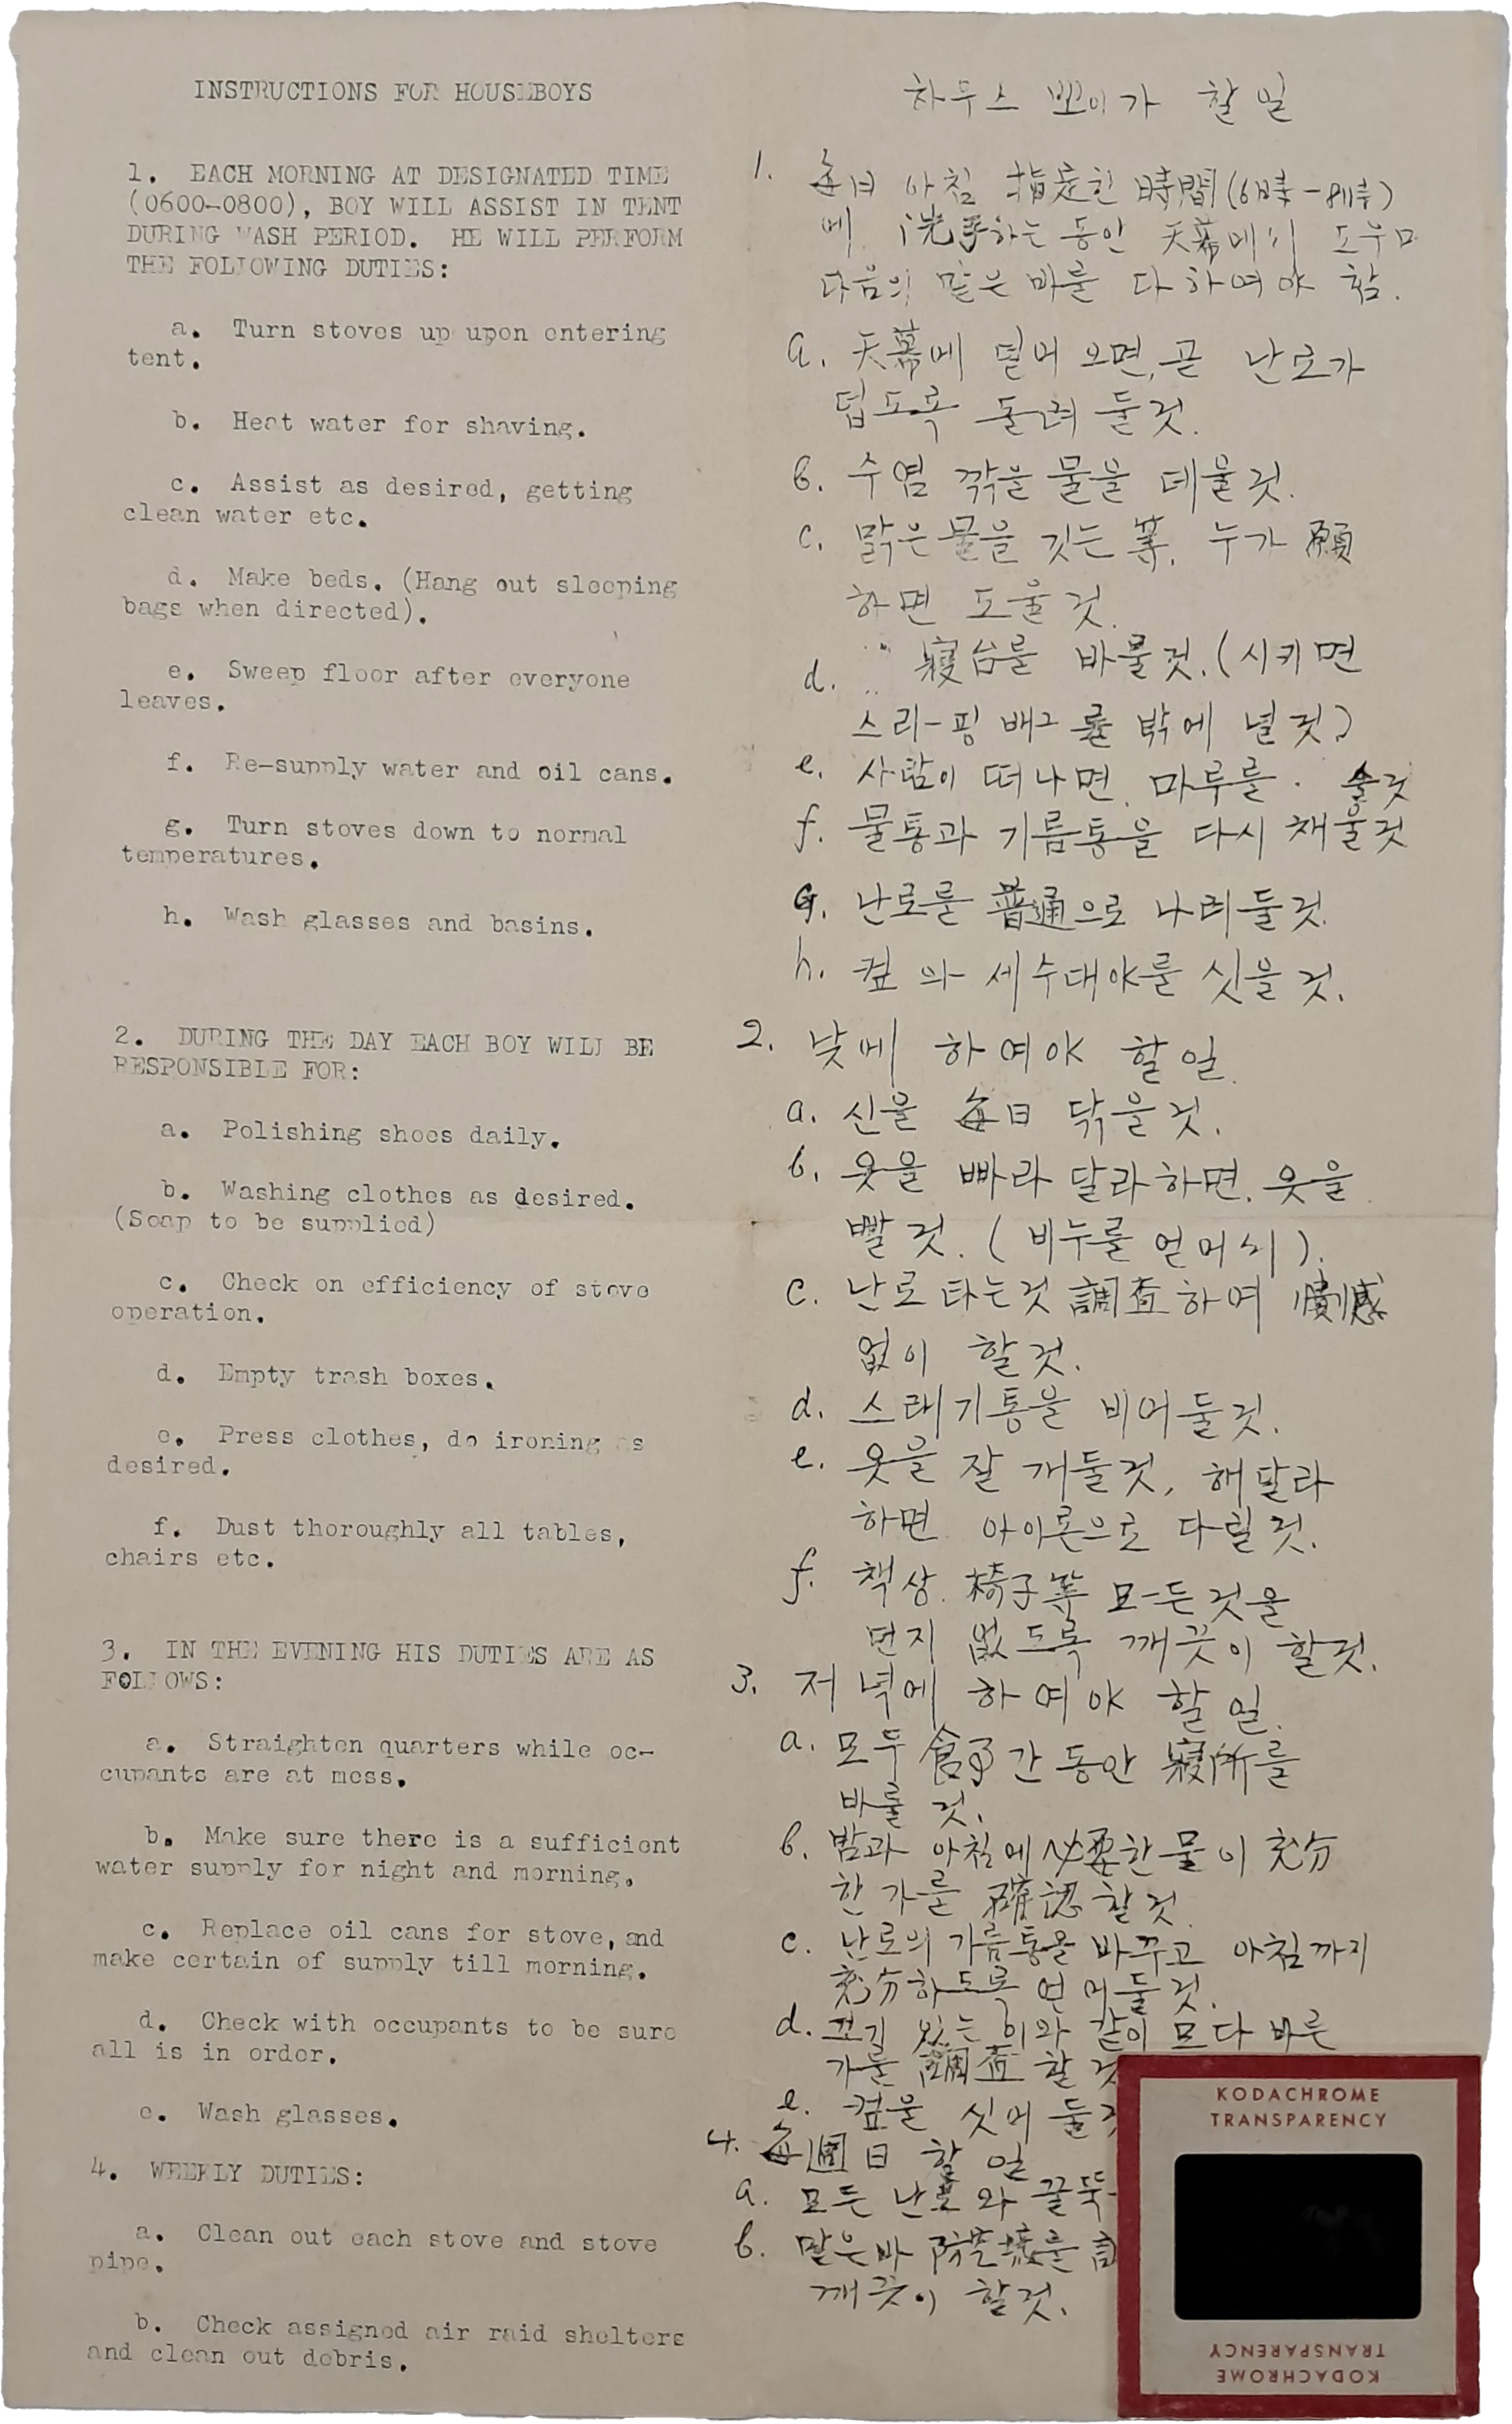 INSTRUCTIONS FOR HOUSEBOYS
1. EACH MORNING AT DESIGNATED TIME
(0600-0800), BOY WILL ASSIST IN TENT
DURING WASH PERIOD. HE WILL PERFORM
THE FOLLOWING DUTIES:
a. Turn stoves up upon entering
tent.
b. Heat water for shaving.
c. Assist as desired, getting
clean water etc.
d. Make beds. (Hang out sleeping
bags when directed).
e. Sweep floor after everyone
leaves.
f. Re-supply water and oil cans.
g. Turn stoves down to normal
temperatures.
h. Wash glasses and basins.
2. DURING THE DAY EACH BOY WILL BE
RESPONSIBLE FOR:
a. Polishing shoes daily.
b. Washing clothes as desired.
(Soap to be supplied)
c. Check on efficiency of stove
operation.
d. Empty trash boxes.
e. Press clothes, do ironing as
desired.
f. Dust thoroughly all tables,
chairs etc.
3. IN THE EVENING HIS DUTIES ARE AS
FOLLOWS:
a. Straighten quarters while oc-
cupants are at mess.
b. Make sure there is a sufficient
water supply for night and morning.
c. Replace oil cans for stove, and
make certain of supply till morning.
d. Check with occupants to be sure
all is in order.
e. Wash glasses.
4. WEEKLY DUTIES:
a. Clean out each stove and stove
pipe.
b. Check assigned air raid shelters
and clean out debris.
하우스 뽀이가 할 일
1. 每日 아침 指定한 時間(6時-8時)
에 洗手하는 동안 天幕에서 도우며
다음의 맡은 바를 다 하여야 함.
a. 天幕에 덜어 오면, 곧 난로가
덥도록 돌려 둘것.
b. 수염 깎을 물을 데울것.
c. 맑은 물을 깃는 等, 누가 願
하면 도울것.
d. 寢台를 바룰것. (시키면
스리-핑 배그를 밖에 널것)
e. 사람이 떠나면 마루를 쓸것
f. 물통과 기름통을 다시 채울것
G. 난로를 普通으로 나려둘것.
h. 컾와 세수대야를 싯을것.
2. 낮에 하여야 할일.
a. 신을 每日 닦을것.
b. 옷을 빠라 달라하면, 옷을
빨것. (비누를 얻어서).
c. 난로 타는것 調査하여
없이 할것.
d. 스래기통을 비어둘것.
e. 옷을 잘 개둘것, 해달라
하면 아이론으로 다릴것.
f. 책상, 椅子等 모-든것을
먼지 없도록 깨끗이 할것.
3. 저녁에 하여야 할일.
a. 모두 食事간 동안 寢所를
바룰것.
b. 밤과 아침에 必要한 물이 充分
한가를 確認할것.
c. 난로의 기름통을 바꾸고 아침까지
充分하도록 얻어둘것.
d. 있는 이와 같이 모다 바른
가를 調査 할것
e. 컾을 싯어 둘것
4. 每週日 할 일
a. 모든 난로와 꿀뚝
b. 맡은바 防空壕를
깨끗이 할것.
KODACHROME
TRANSPARENCY
KODACHROME
TRANSPARENCY